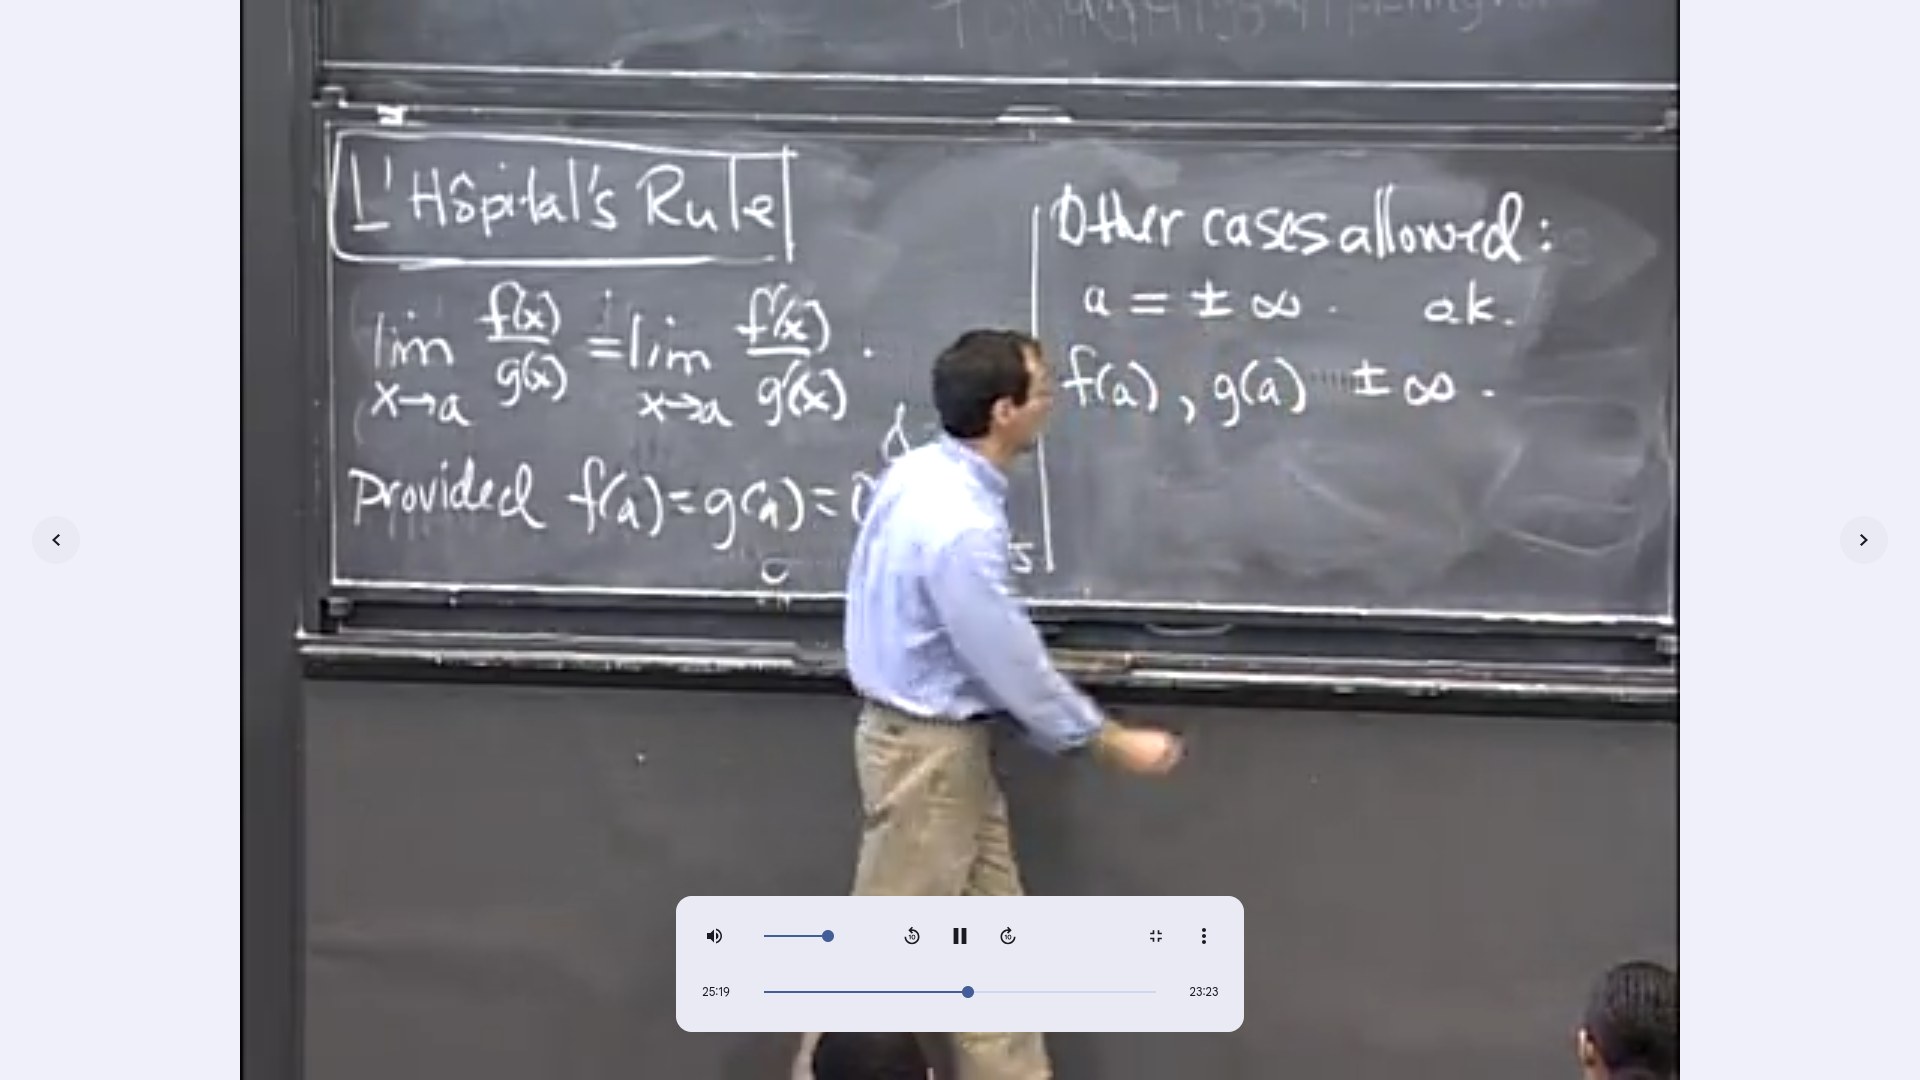 L'Hôpital's Rule
lim x→a f(x)/g(x) = lim x→a f'(x)/g'(x) .
Provided f(a)=g(a)=0
Other cases allowed:
a = ± ∞ . ok.
f(a), g(a) ± ∞ .
25:19
23:23